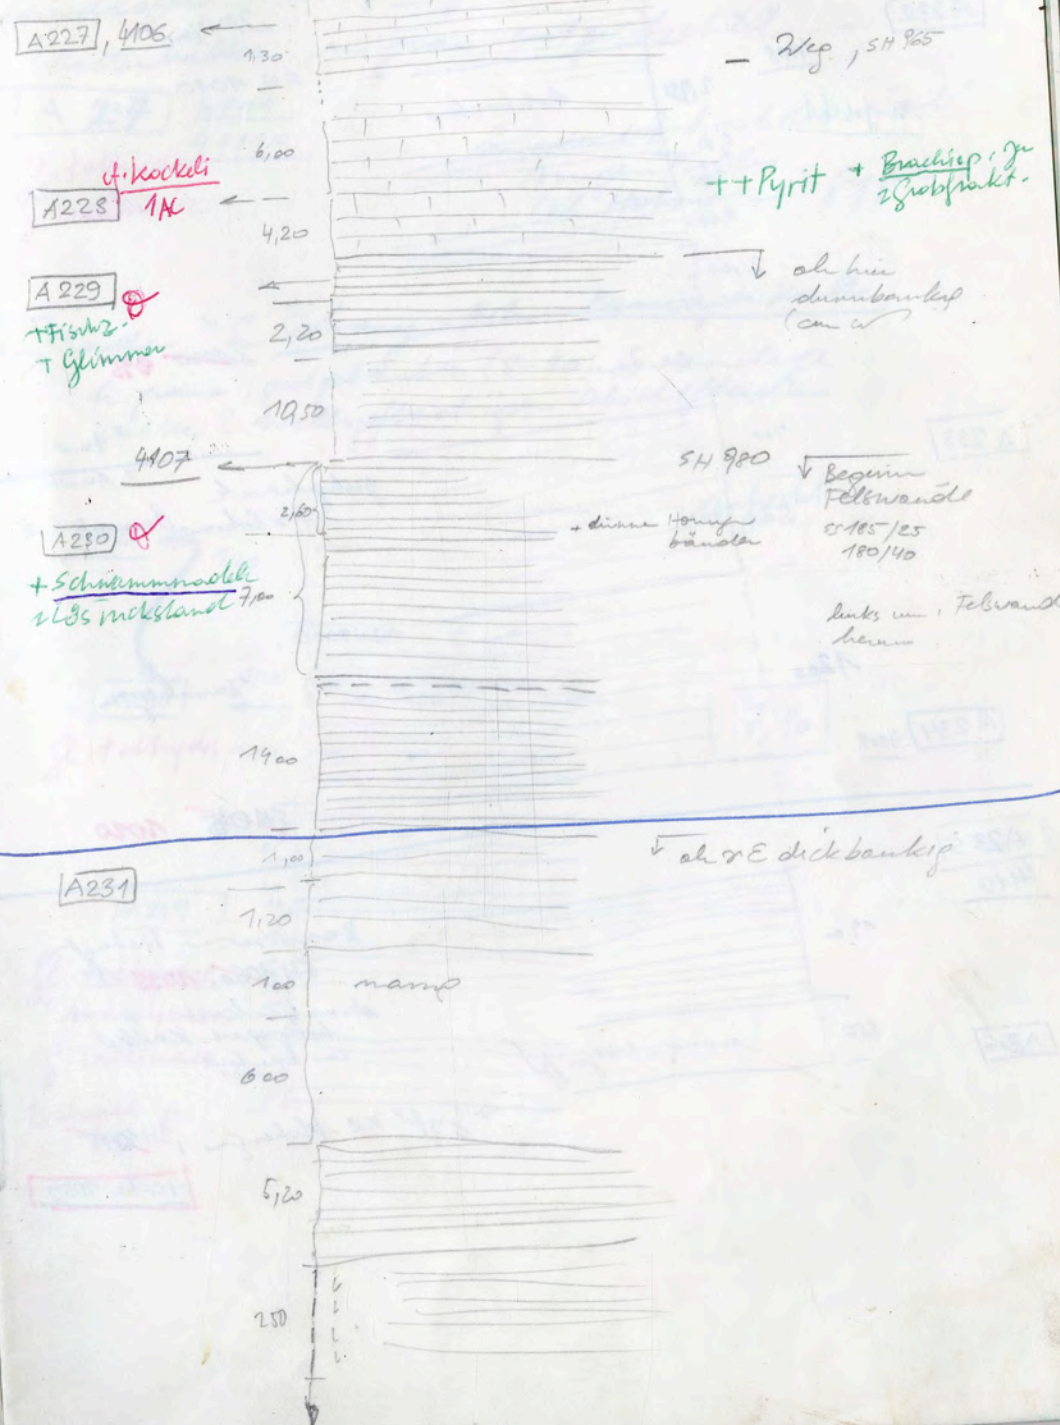 A227, 4106
1,30
– Weg, SH 965
6,00
cf. Kockeli
1AC
++Pyrit + Brachiop. in
Grobfrakt.
A228
4,20
A 229
ab hier
dünnbankig
(cm
+Fischz.
+ Glimmer
2,20
10,50
4107
SH 980
Beginn
Felswände
2,60
+ dünne
bänder
ss 185/25
180/40
A230
+ Schwammnadeln
Lös rückstand
7,00
links um Felswand
herum
1400
1,00
ab dickbankig
A231
1,20
100
massig
600
5,20
250